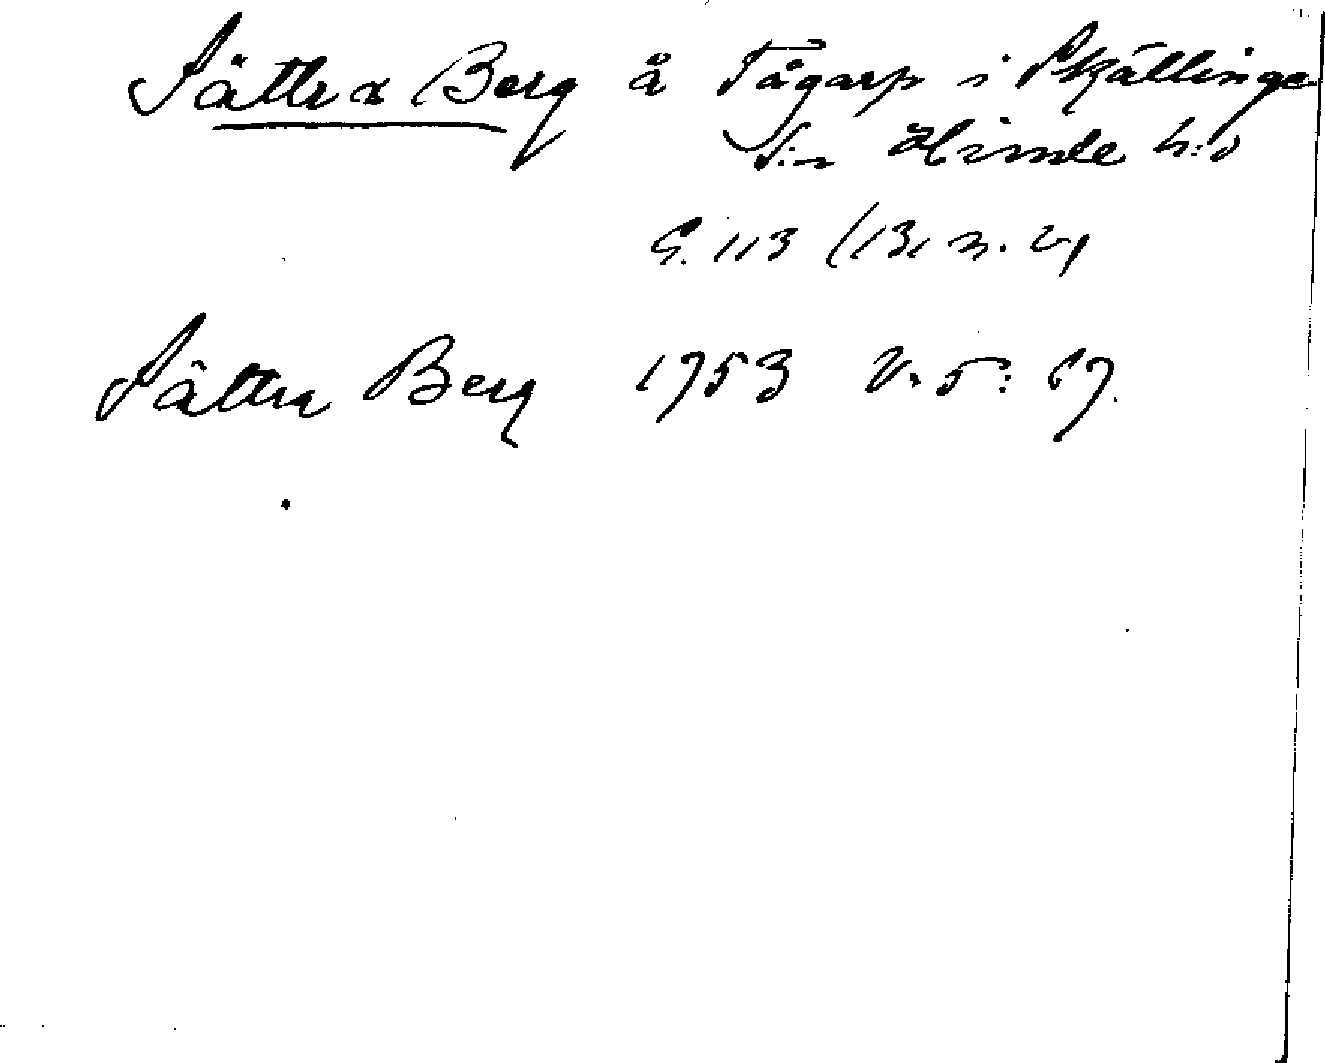 Sättra Berg å Tågarp i Skällinge
S:n Himle h:d
S. 113 (13,
Sättra Berg 1753 V. 5: 67.